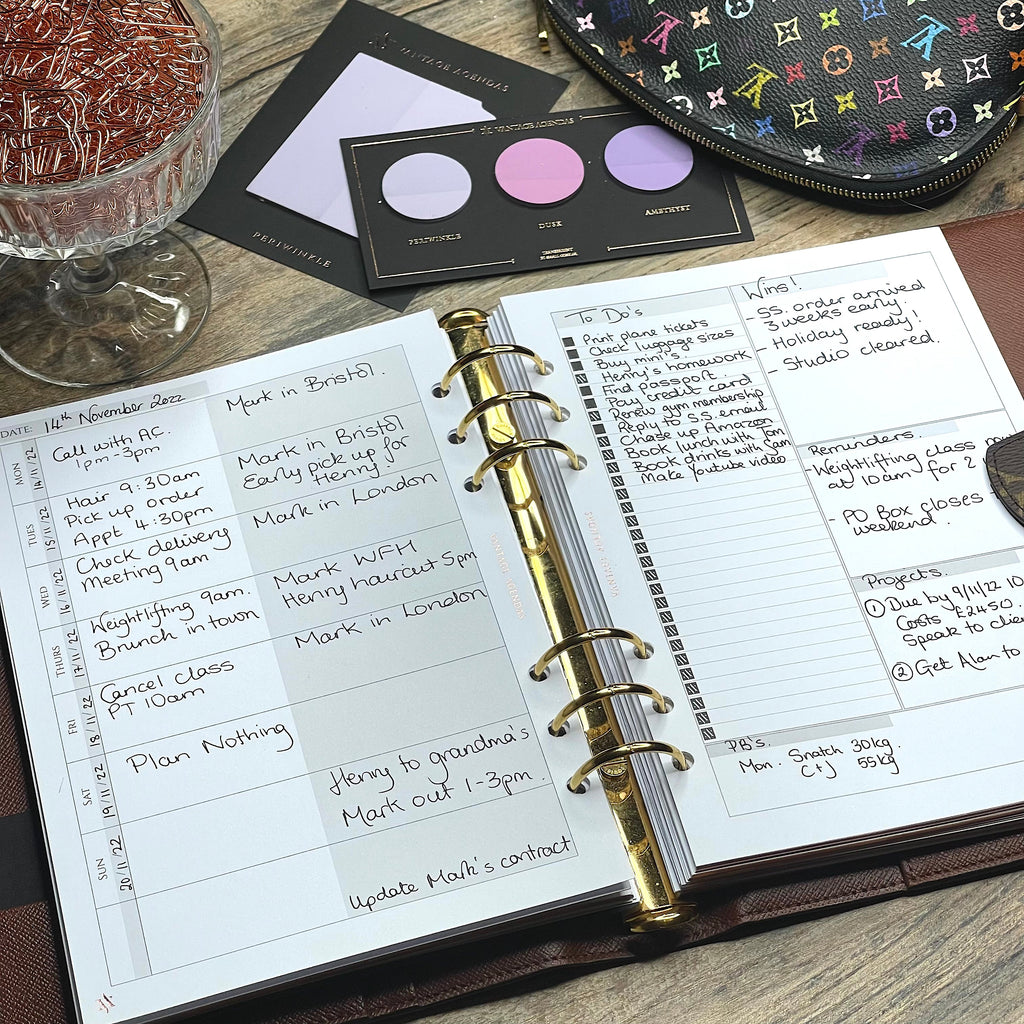 VANTAGE AGENDAS
PERIWINKLE
VANTAGE AGENDAS
PERIWINKLE
DUSK
AMETHYST
TRANSPARENT
DATE: 14th November 2022
MON
14/11/22
Call with AC.
1pm-3pm
Mark in Bristol.
TUES
15/11/22
Hair 9:30am
Pick up order
Appt 4:30pm
Mark in Bristol
Early pick up for
Henry!
WED
16/11/22
Check delivery
Meeting 9am
Mark in London
THURS
17/11/22
Weightlifting 9am.
Brunch in town
Mark WFH
Henry haircut 5pm
FRI
18/11/22
Cancel class
PT 10am
Mark in London
SAT
19/11/22
Plan Nothing
SUN
20/11/22
Henry to grandma's
Mark out 1-3pm.
Update Mark's contract
VANTAGE AGENDAS
VANTAGE AGENDAS
To Do's
Print plane tickets
Check luggage sizes
Buy mini's
Henry's homework
Find passport
Pay credit card
Renew gym membership
Reply to S.S. email
Chase up Amazon
Book lunch with Tom
Book drinks with Sam
Make Youtube video
Wins!
- S.S. order arrived
3 weeks early.
- Holiday ready!
- Studio cleared.
Reminders.
- Weightlifting class
at 10am for 2
- PO Box closes
weekend.
Projects.
① Due by 9/11/22 10
Costs £2450.
Speak to
② Get Alan to
PB's.
Mon. Snatch 30kg.
C+J 55kg